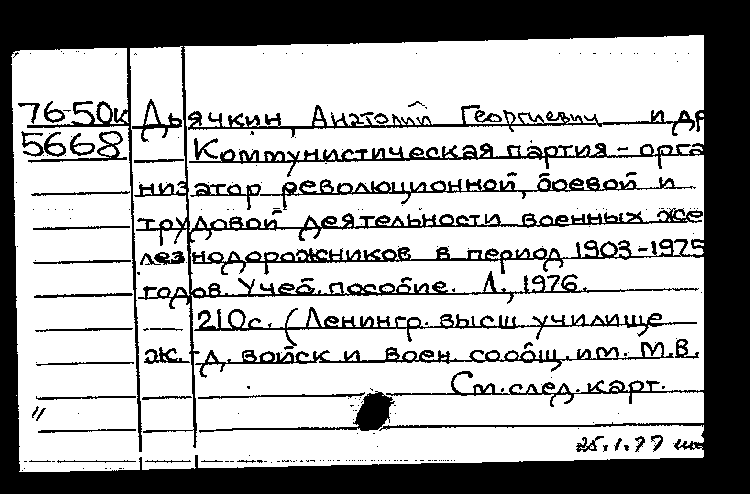 76-50к Дьячкин, Анатолий Георгиевич и др
5668 Коммунистическая партия - орга
низатор революционной, боевой и
трудовой деятельности военных же
лезнодорожников в период 1903-1975
годов. Учеб. пособие. Л., 1976.
210с. (Ленингр. высш училище
ж.-д. войск и воен. сообщ. им. М.В.
См. след. карт.
"
25.1.77